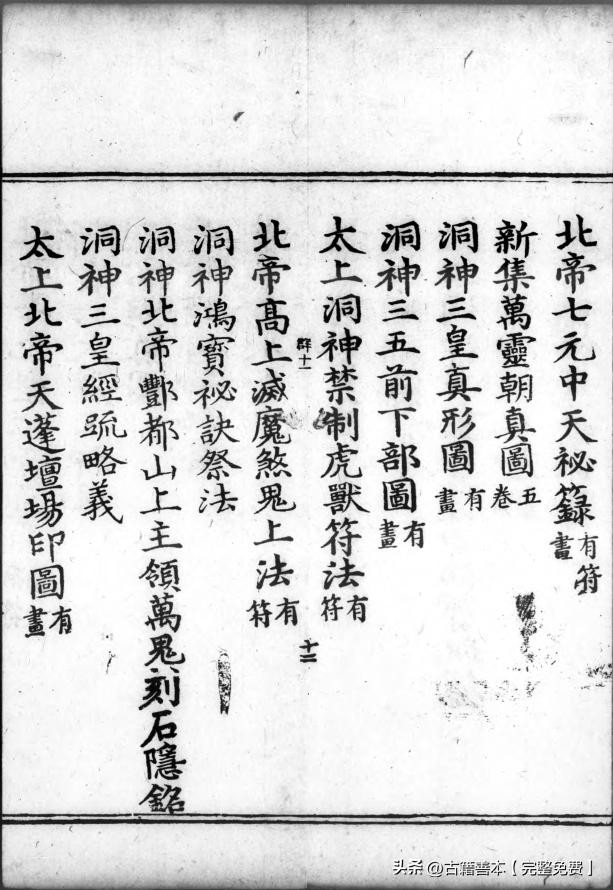 北帝七元中天祕籙有符畫
新集萬靈朝真圖五卷
洞神三皇真形圖有畫
洞神三五前下部圖有畫
太上洞神禁制虎獸符法有符
群十一
十二
北帝高上滅魔煞鬼上法有符
洞神鴻寶祕訣祭法
洞神北帝酆都山上主領萬鬼刻石隱銘
洞神三皇經疏略義
太上北帝天蓬壇場印圖有畫
头条 @古籍善本【完整免费】